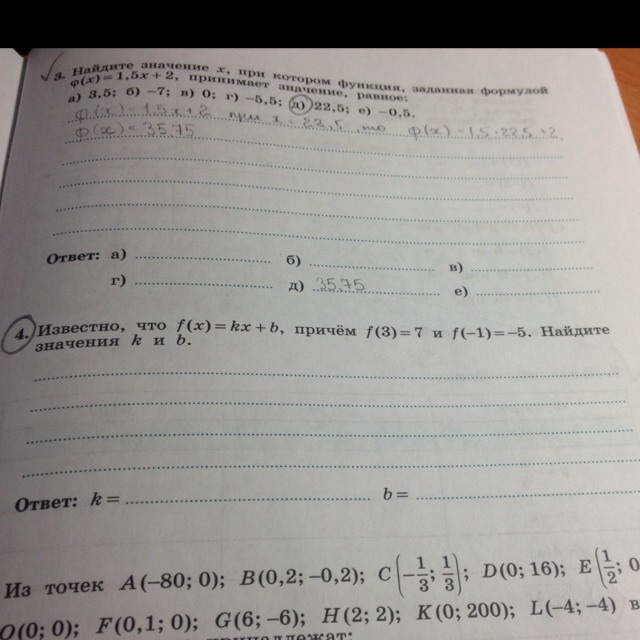 3. Найдите значение x, при котором функция, заданная формулой
φ(x)=1,5x+2, принимает значение, равное:
а) 3,5; б) −7; в) 0; г) −5,5; д) 22,5; е) −0,5.
φ(x)=1,5x+2 при x=22,5, то φ(x)=1,5·22,5+2,
φ(x)=35.75
Ответ: а) б) в)
г) д) 35.75 е)
4. Известно, что f(x)=kx+b, причём f(3)=7 и f(−1)=−5. Найдите
значения k и b.
Ответ: k= b=
Из точек A(−80; 0); B(0,2; −0,2); C(−1/3; 1/3); D(0; 16); E(1/2; 0
O(0; 0); F(0,1; 0); G(6; −6); H(2; 2); K(0; 200); L(−4; −4) в
принадлежат: